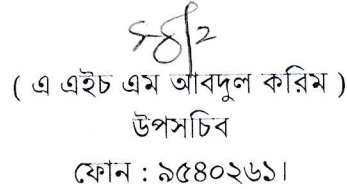 ( এ এইচ এম আবদুল করিম )
উপসচিব
ফোন : ৯৫৪০২৬১।